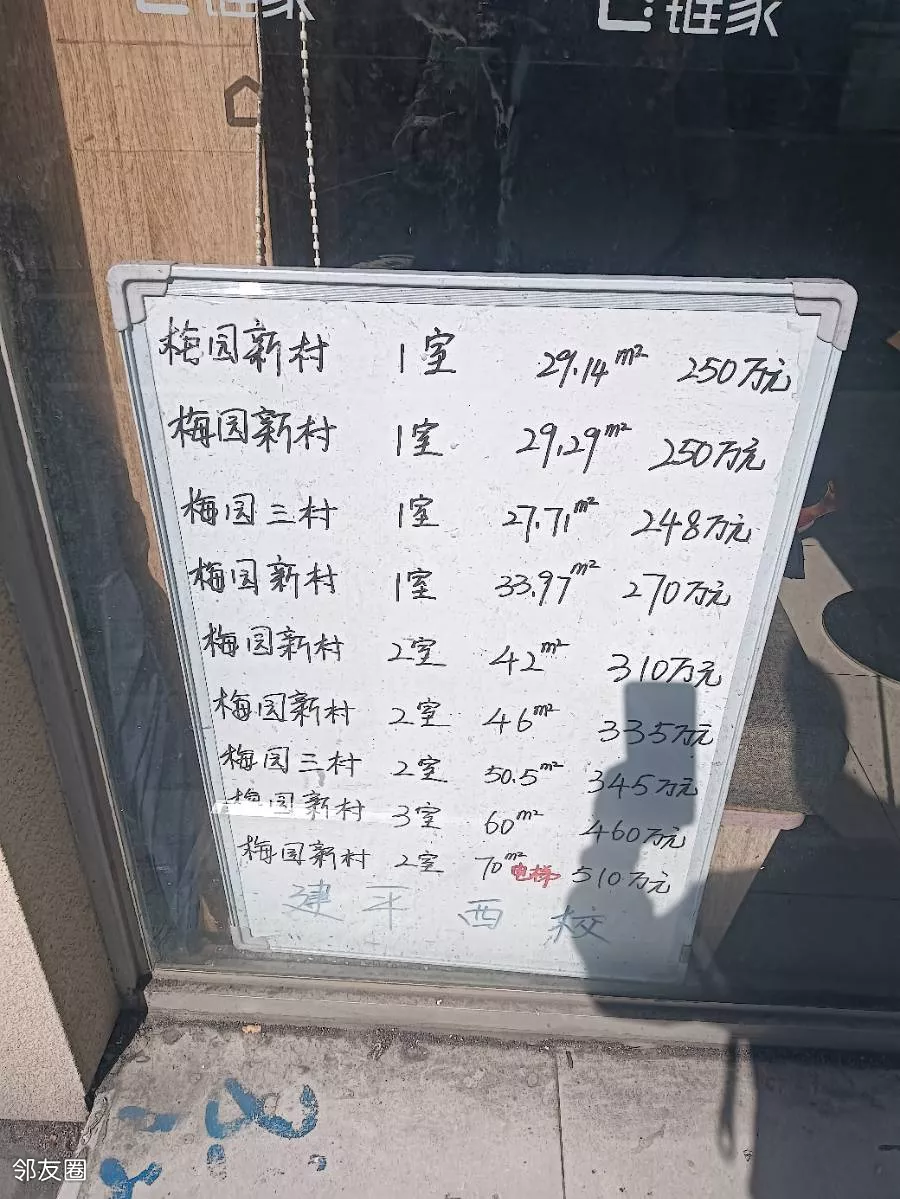 链家
链家
梅园新村 1室 29.14m² 250万元
梅园新村 1室 29.29m² 250万元
梅园三村 1室 27.71m² 248万元
梅园新村 1室 33.97m² 270万元
梅园新村 2室 42m² 310万元
梅园新村 2室 46m² 335万元
梅园三村 2室 50.5m² 345万元
梅园新村 3室 60m² 460万元
梅园新村 2室 70m² 电梯 510万元
建平西校
邻友圈